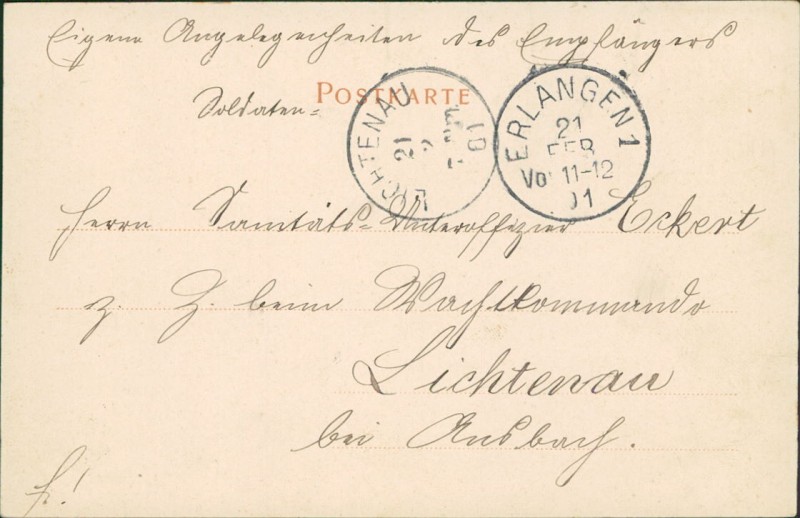 Eigene Angelegenheiten des Empfängers
Soldaten=
POSTKARTE
LICHTENAU
21
2
01
ERLANGEN 1
21
FEB
Vo 11-12
01
Herrn Sanitäts=Unteroffizier Eckert
z. Z. beim Wachtkommando
Lichtenau
bei Ansbach.